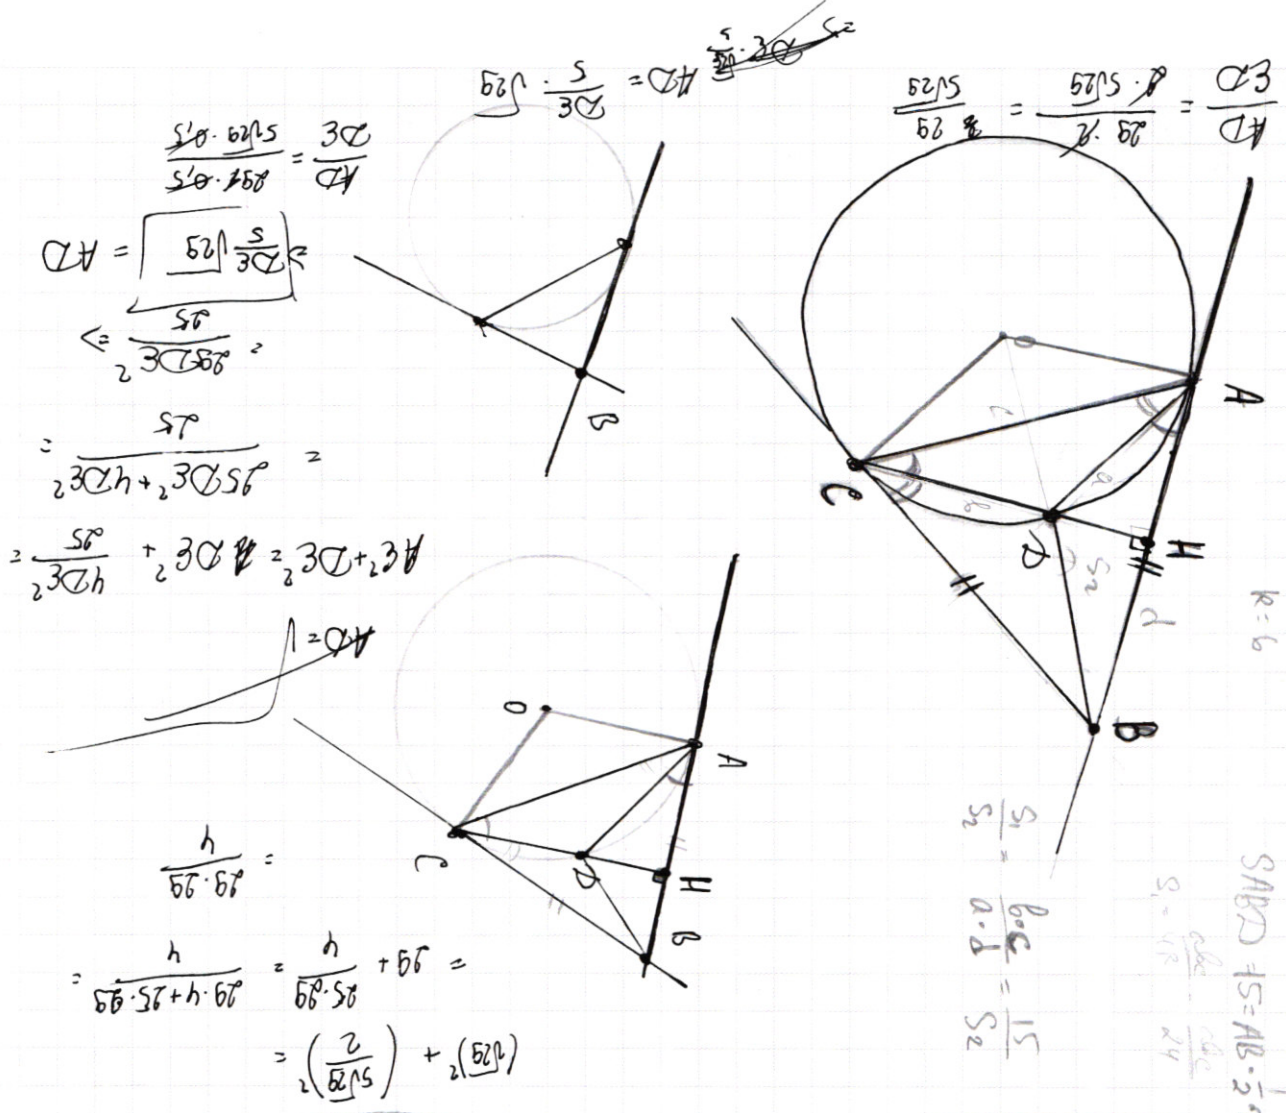 ED/AD = 29·2/(2·5√29) = 29/(5√29)
AD = DE/5 · √29
AD/DE = 29·0,5/(5√29·0,5)
=> DE/5 √29 = AD
= 29DE²/25 =>
= (25DE²+4DE²)/25 =
AE²+DE² = DE² + 4DE²/25 =
AD = √
(√29)² + (5√29/2)² =
= 29 + 25·29/4 = (29·4+25·29)/4 =
= 29·29/4
A
B
C
D
H
O
a
b
c
d
S₂
R=6
B
A
B
C
D
H
O
S₁/S₂ = b·c/(a·d) = 15/S₂
SABD = 15 = AB · 1/2
S₁ = abc/4R = abc/24